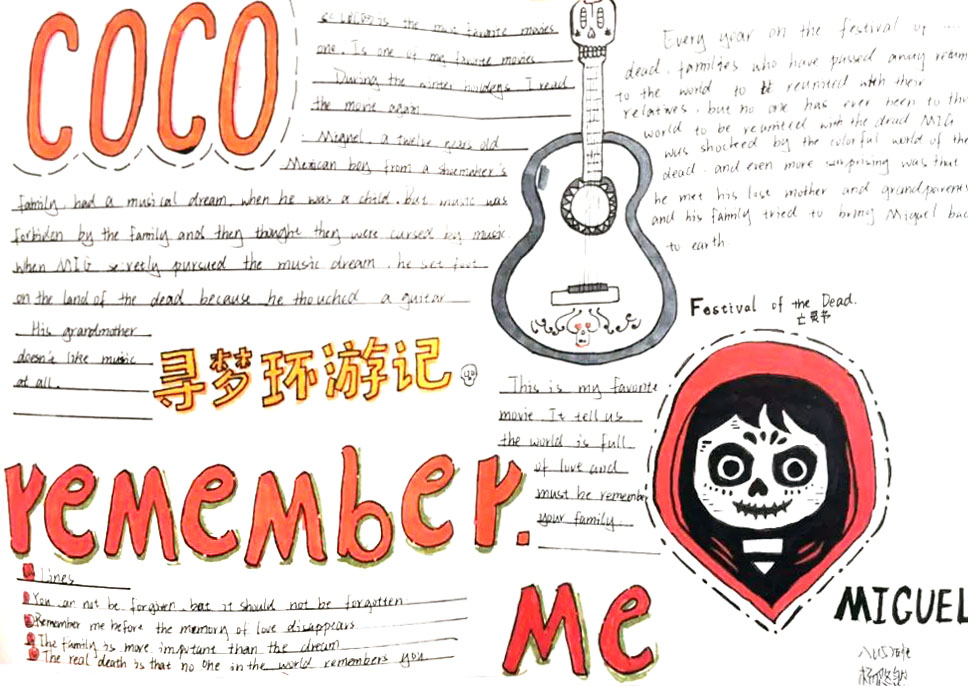 COCO
is the most favorite movies
one. Is one of my favorite movies
During the winter I read
the movie again
Miguel, a twelve years old
Mexican boy from a shoemaker's
family, had a musical dream, when he was a child. But music was
forbiden by the family and then thought they were cursed by music.
when MIG secretly pursued the music dream, he set foot
on the land of the dead because he thouched a guitar
His grandmother
doesn't like music
at all.
寻梦环游记
Every year on the festival of ....
dead, families who have passed away return
to the world to reunited with their
relatives, but no one has ever been to the
world to be reunited with the dead MIG
was shocked by the colorful world of the
dead, and even more surprising was that
he met his last mother and grandparents
and his family tried to bring Miguel bac
to earth.
Festival of the Dead.
亡灵节
This is my favorite
movie. It tell us
the world is full
of love and
must be remember
your family.
remember.
Me
1 Lines
You can not be forgiven, but it should not be forgotten
Remember me before the memory of love disappears
The family is more important than the dream
The real death is that no one in the world remembers you
MIGUEL